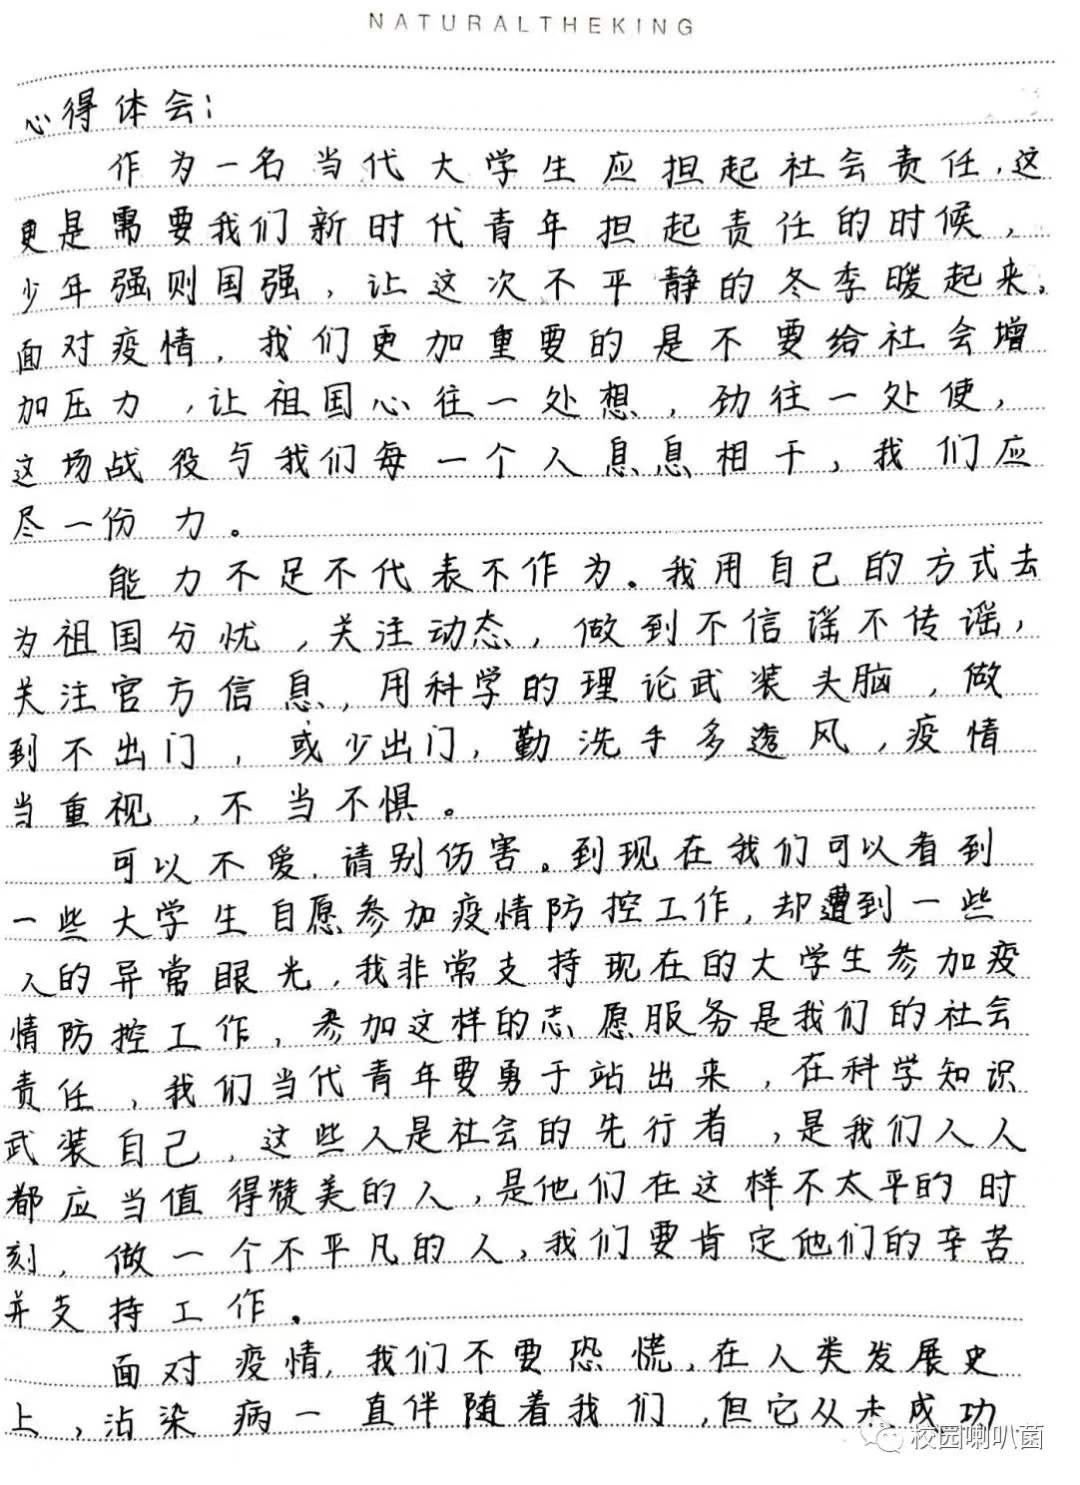 NATURALTHEKING
心得体会:
作为一名当代大学生应担起社会责任,这
更是需要我们新时代青年担起责任的时候,
少年强则国强,让这次不平静的冬季暖起来。
面对疫情,我们更加重要的是不要给社会增
加压力,让祖国心往一处想,劲往一处使,
这场战役与我们每一个人息息相干,我们应
尽一份力。
能力不足不代表不作为。我用自己的方式去
为祖国分忧,关注动态,做到不信谣不传谣,
关注官方信息,用科学的理论武装头脑,做
到不出门,或少出门,勤洗手多透风,疫情
当重视,不当不惧。
可以不爱,请别伤害。到现在我们可以看到
一些大学生自愿参加疫情防控工作,却遭到一些
人的异常眼光,我非常支持现在的大学生参加疫
情防控工作,参加这样的志愿服务是我们的社会
责任,我们当代青年要勇于站出来,在科学知识
武装自己,这些人是社会的先行者,是我们人人
都应当值得赞美的人,是他们在这样不太平的时
刻,做一个不平凡的人,我们要肯定他们的辛苦
并支持工作。
面对疫情,我们不要恐慌,在人类发展史
上,沾染病一直伴随着我们,但它从未成功
校园喇叭菌